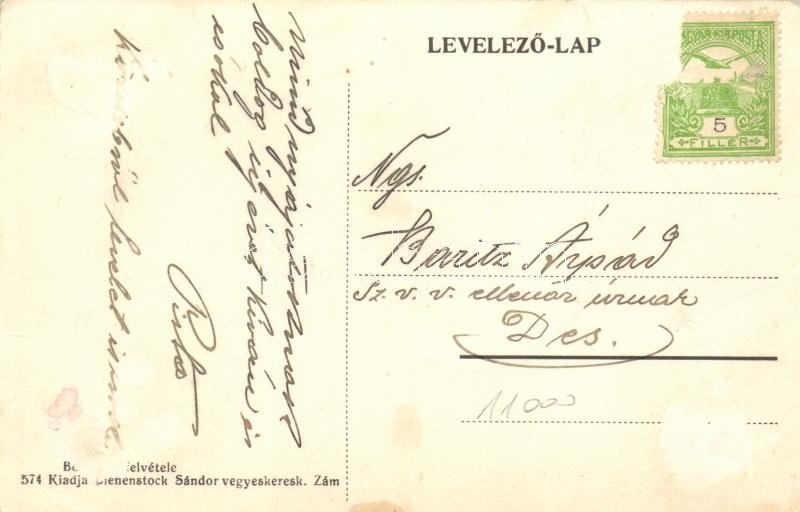 LEVELEZŐ-LAP
MAGYAR KIR. POSTA
5
FILLÉR
Mindnyájatoknak
boldog új évet kíván és
csókol
Pista
levelet is
Ngs.
Baritz Árpád
Sz. v. v. ellenőr úrnak
Des.
11000
felvétele
574 Kiadja Bienenstock Sándor vegyeskeresk. Zám